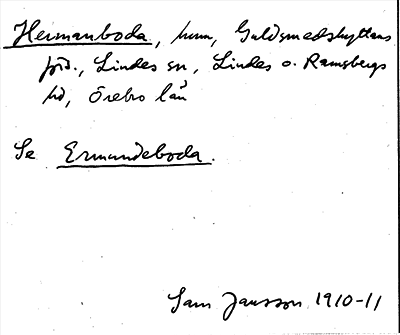 Hermanboda, hmn, Guldsmedshyttans
förs., Lindes sn, Lindes o. Ramsbergs
hd, Örebro län
Se Ermundeboda.
Sam Jansson 1910-11